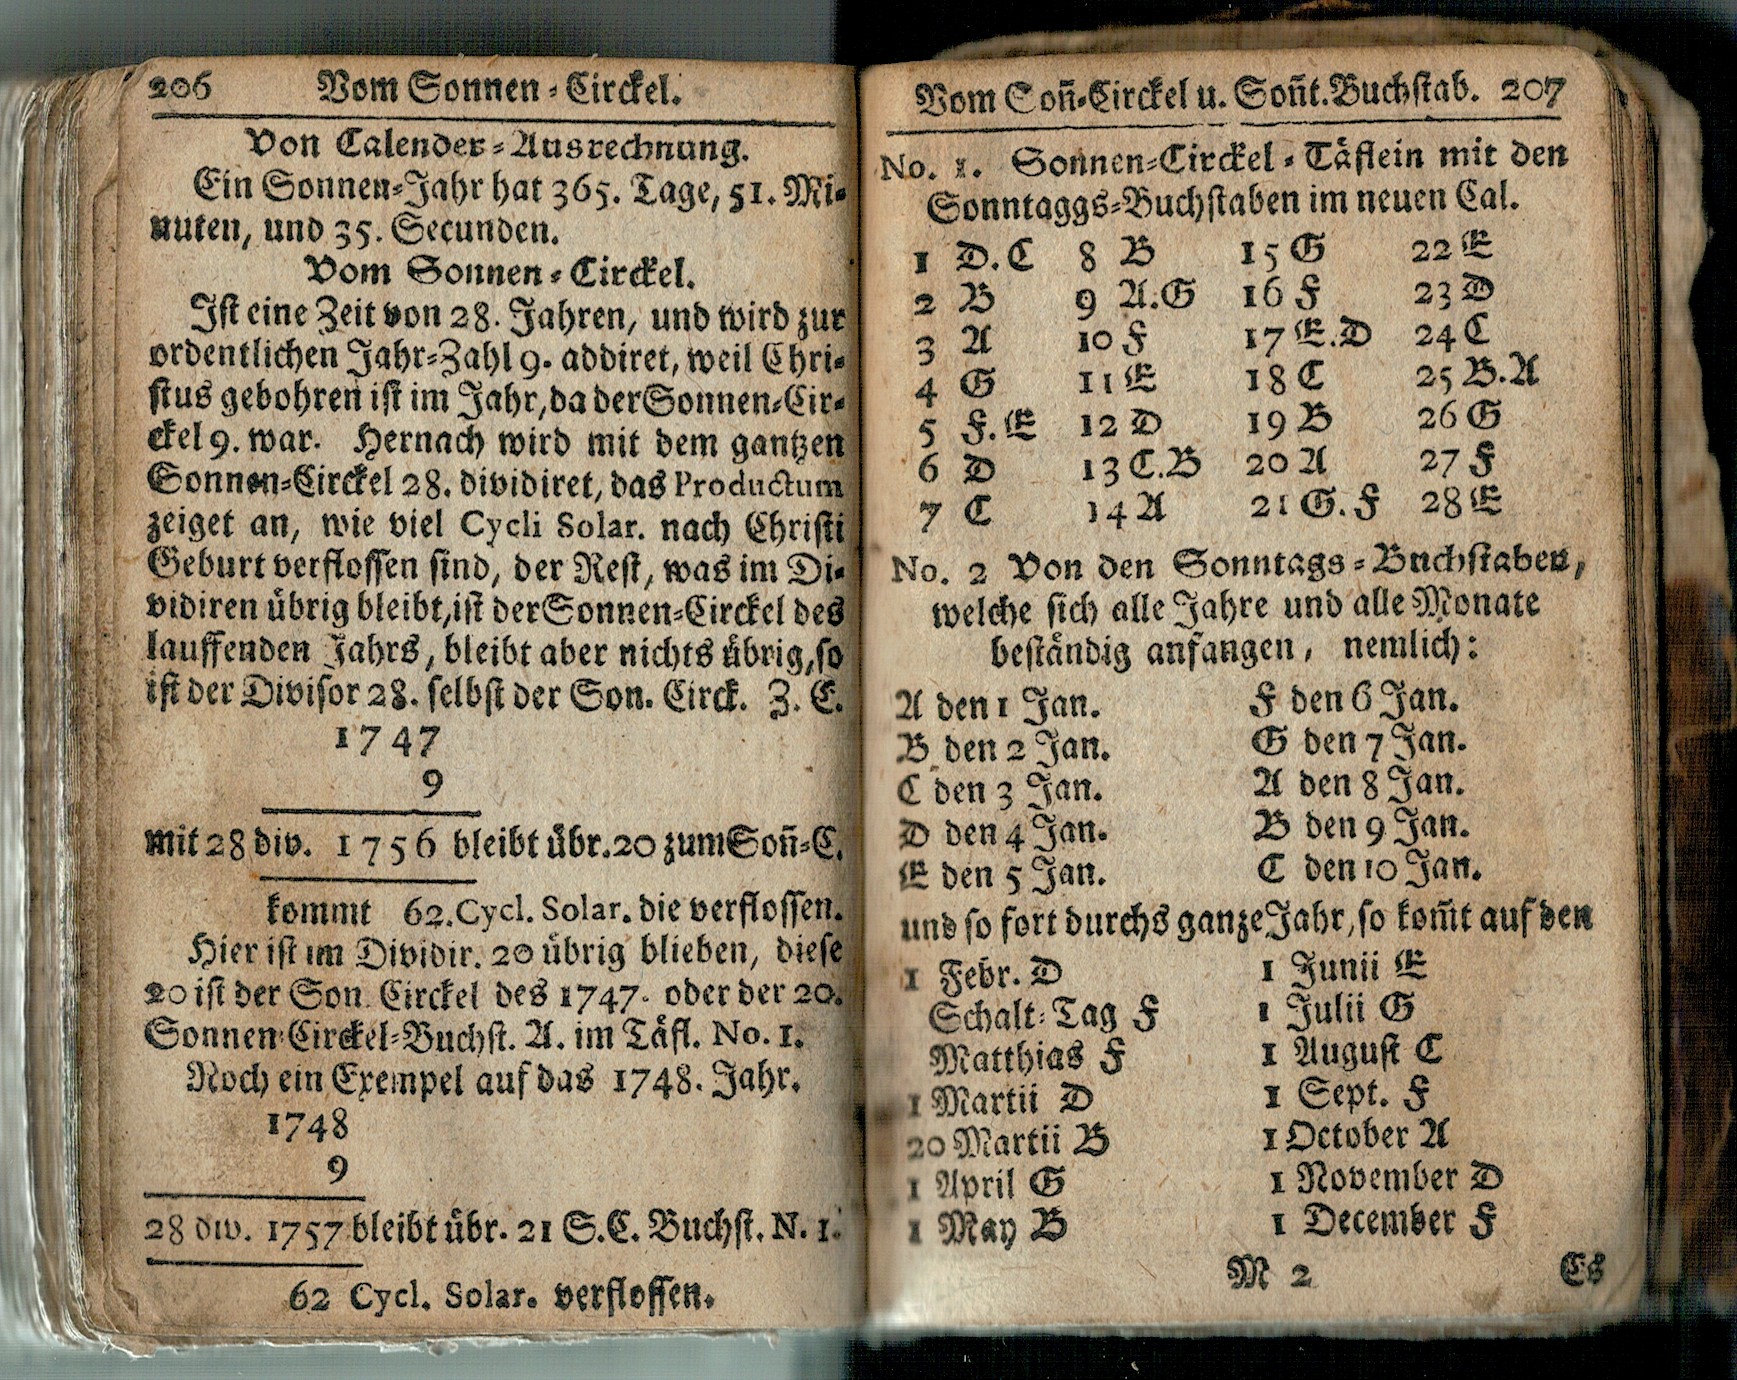 206 Vom Sonnen-Circkel.
Von Calender-Ausrechnung.
Ein Sonnen-Jahr hat 365. Tage, 51. Mi-
nuten, und 35. Secunden.
Vom Sonnen-Circkel.
Ist eine Zeit von 28. Jahren, und wird zur
ordentlichen Jahr-Zahl 9. addiret, weil Chri-
stus gebohren ist im Jahr, da der Sonnen-Cir-
ckel 9. war. Hernach wird mit dem gantzen
Sonnen-Circkel 28. dividiret, das Productum
zeiget an, wie viel Cycli Solar. nach Christi
Geburt verflossen sind, der Rest, was im Di-
vidiren übrig bleibt, ist der Sonnen-Circkel des
lauffenden Jahrs, bleibt aber nichts übrig, so
ist der Divisor 28. selbst der Son. Circk. Z. E.
1747
9
mit 28 div. 1756 bleibt übr. 20 zum Soñ-C.
kommt 62. Cycl. Solar. die verflossen.
Hier ist im Dividir. 20 übrig blieben, diese
20 ist der Son. Circkel des 1747. oder der 20.
Sonnen-Circkel-Buchst. A. im Täfl. No. 1.
Noch ein Exempel auf das 1748. Jahr.
1748
9
28 div. 1757 bleibt übr. 21 S.C. Buchst. N. 1.
62 Cycl. Solar. verflossen.
Vom Soñ-Circkel u. Soñt. Buchstab. 207
No. 1. Sonnen-Circkel-Täflein mit den
Sonntaggs-Buchstaben im neuen Cal.
1 D.C 8 B 15 G 22 E
2 B 9 A.G 16 F 23 D
3 A 10 F 17 E.D 24 C
4 G 11 E 18 C 25 B.A
5 F.E 12 D 19 B 26 G
6 D 13 C.B 20 A 27 F
7 C 14 A 21 G.F 28 E
No. 2 Von den Sonntags-Buchstaben,
welche sich alle Jahre und alle Monate
beständig anfangen, nemlich:
A den 1 Jan. F den 6 Jan.
B den 2 Jan. G den 7 Jan.
C den 3 Jan. A den 8 Jan.
D den 4 Jan. B den 9 Jan.
E den 5 Jan. C den 10 Jan.
und so fort durchs ganze Jahr, so kom̃t auf den
1 Febr. D 1 Junii E
Schalt-Tag F 1 Julii G
Matthias F 1 August C
1 Martii D 1 Sept. F
20 Martii B 1 October A
1 April G 1 November D
1 May B 1 December F
M 2 Es